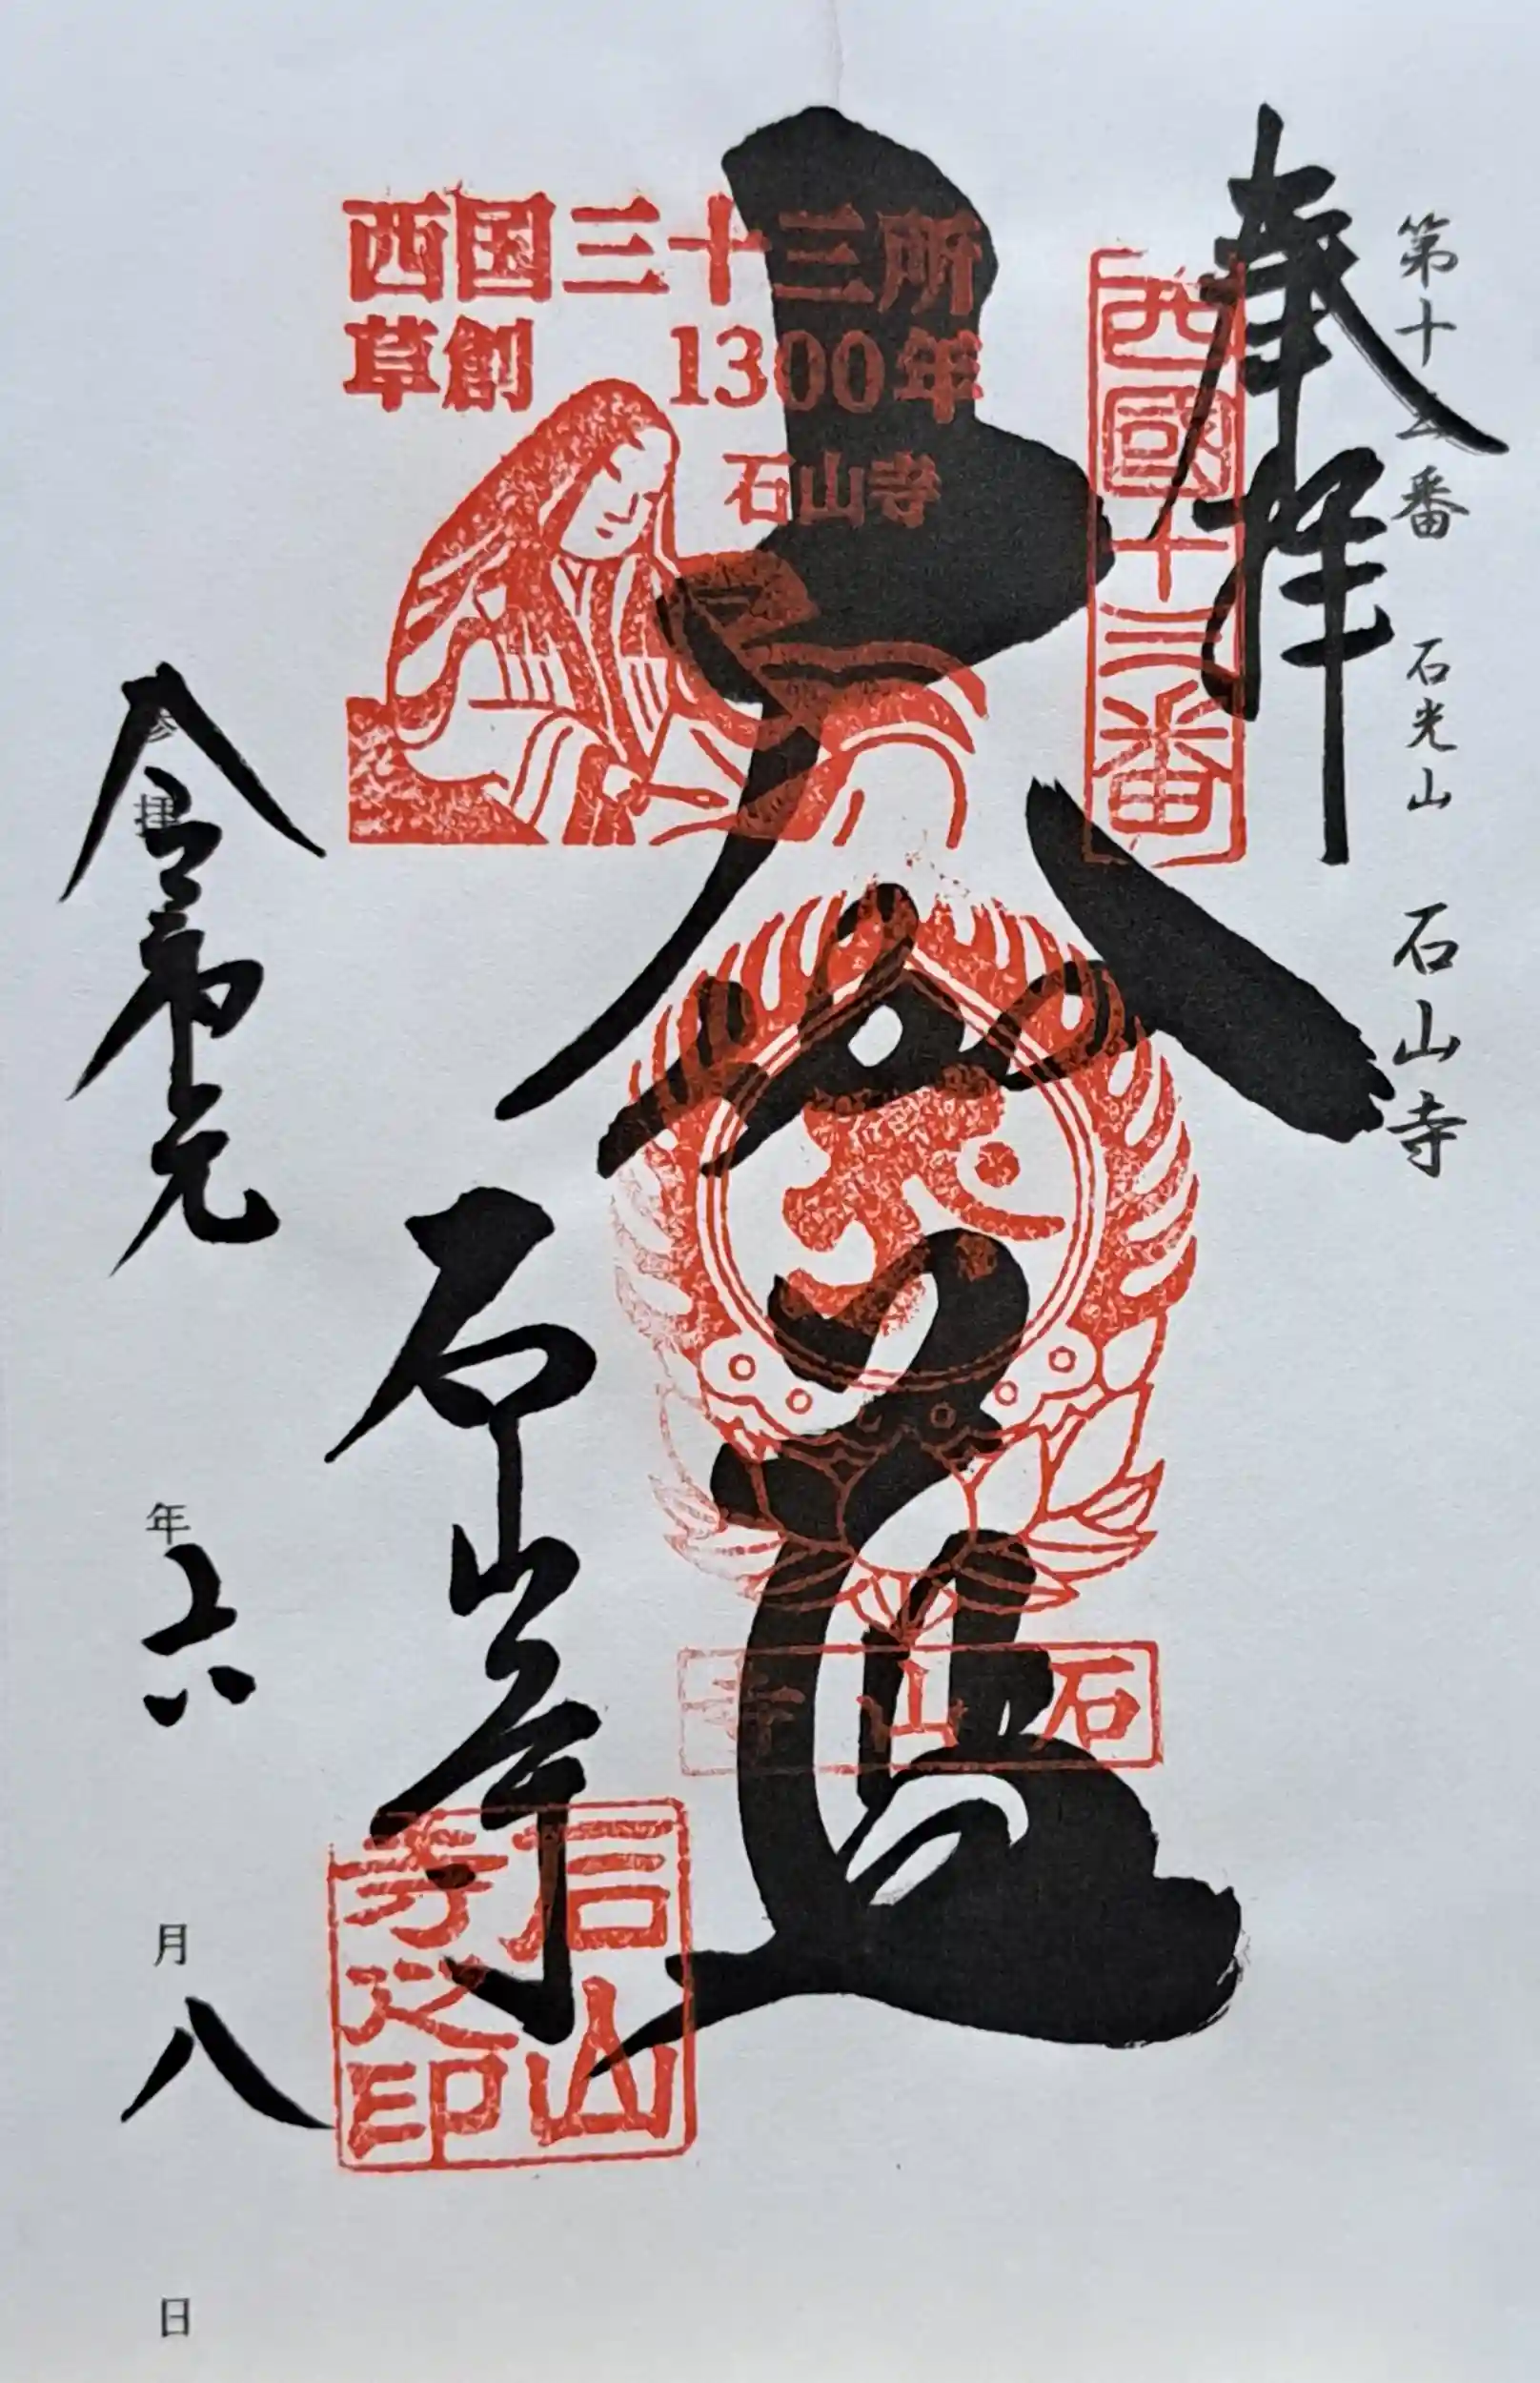 第十三番 石光山 石山寺
奉拝
西國十三番
大悲殿
西国三十三所
草創 1300年
石山寺
石山寺
石山寺
石山寺之印
参拝
令和元
年 六
月 八
日